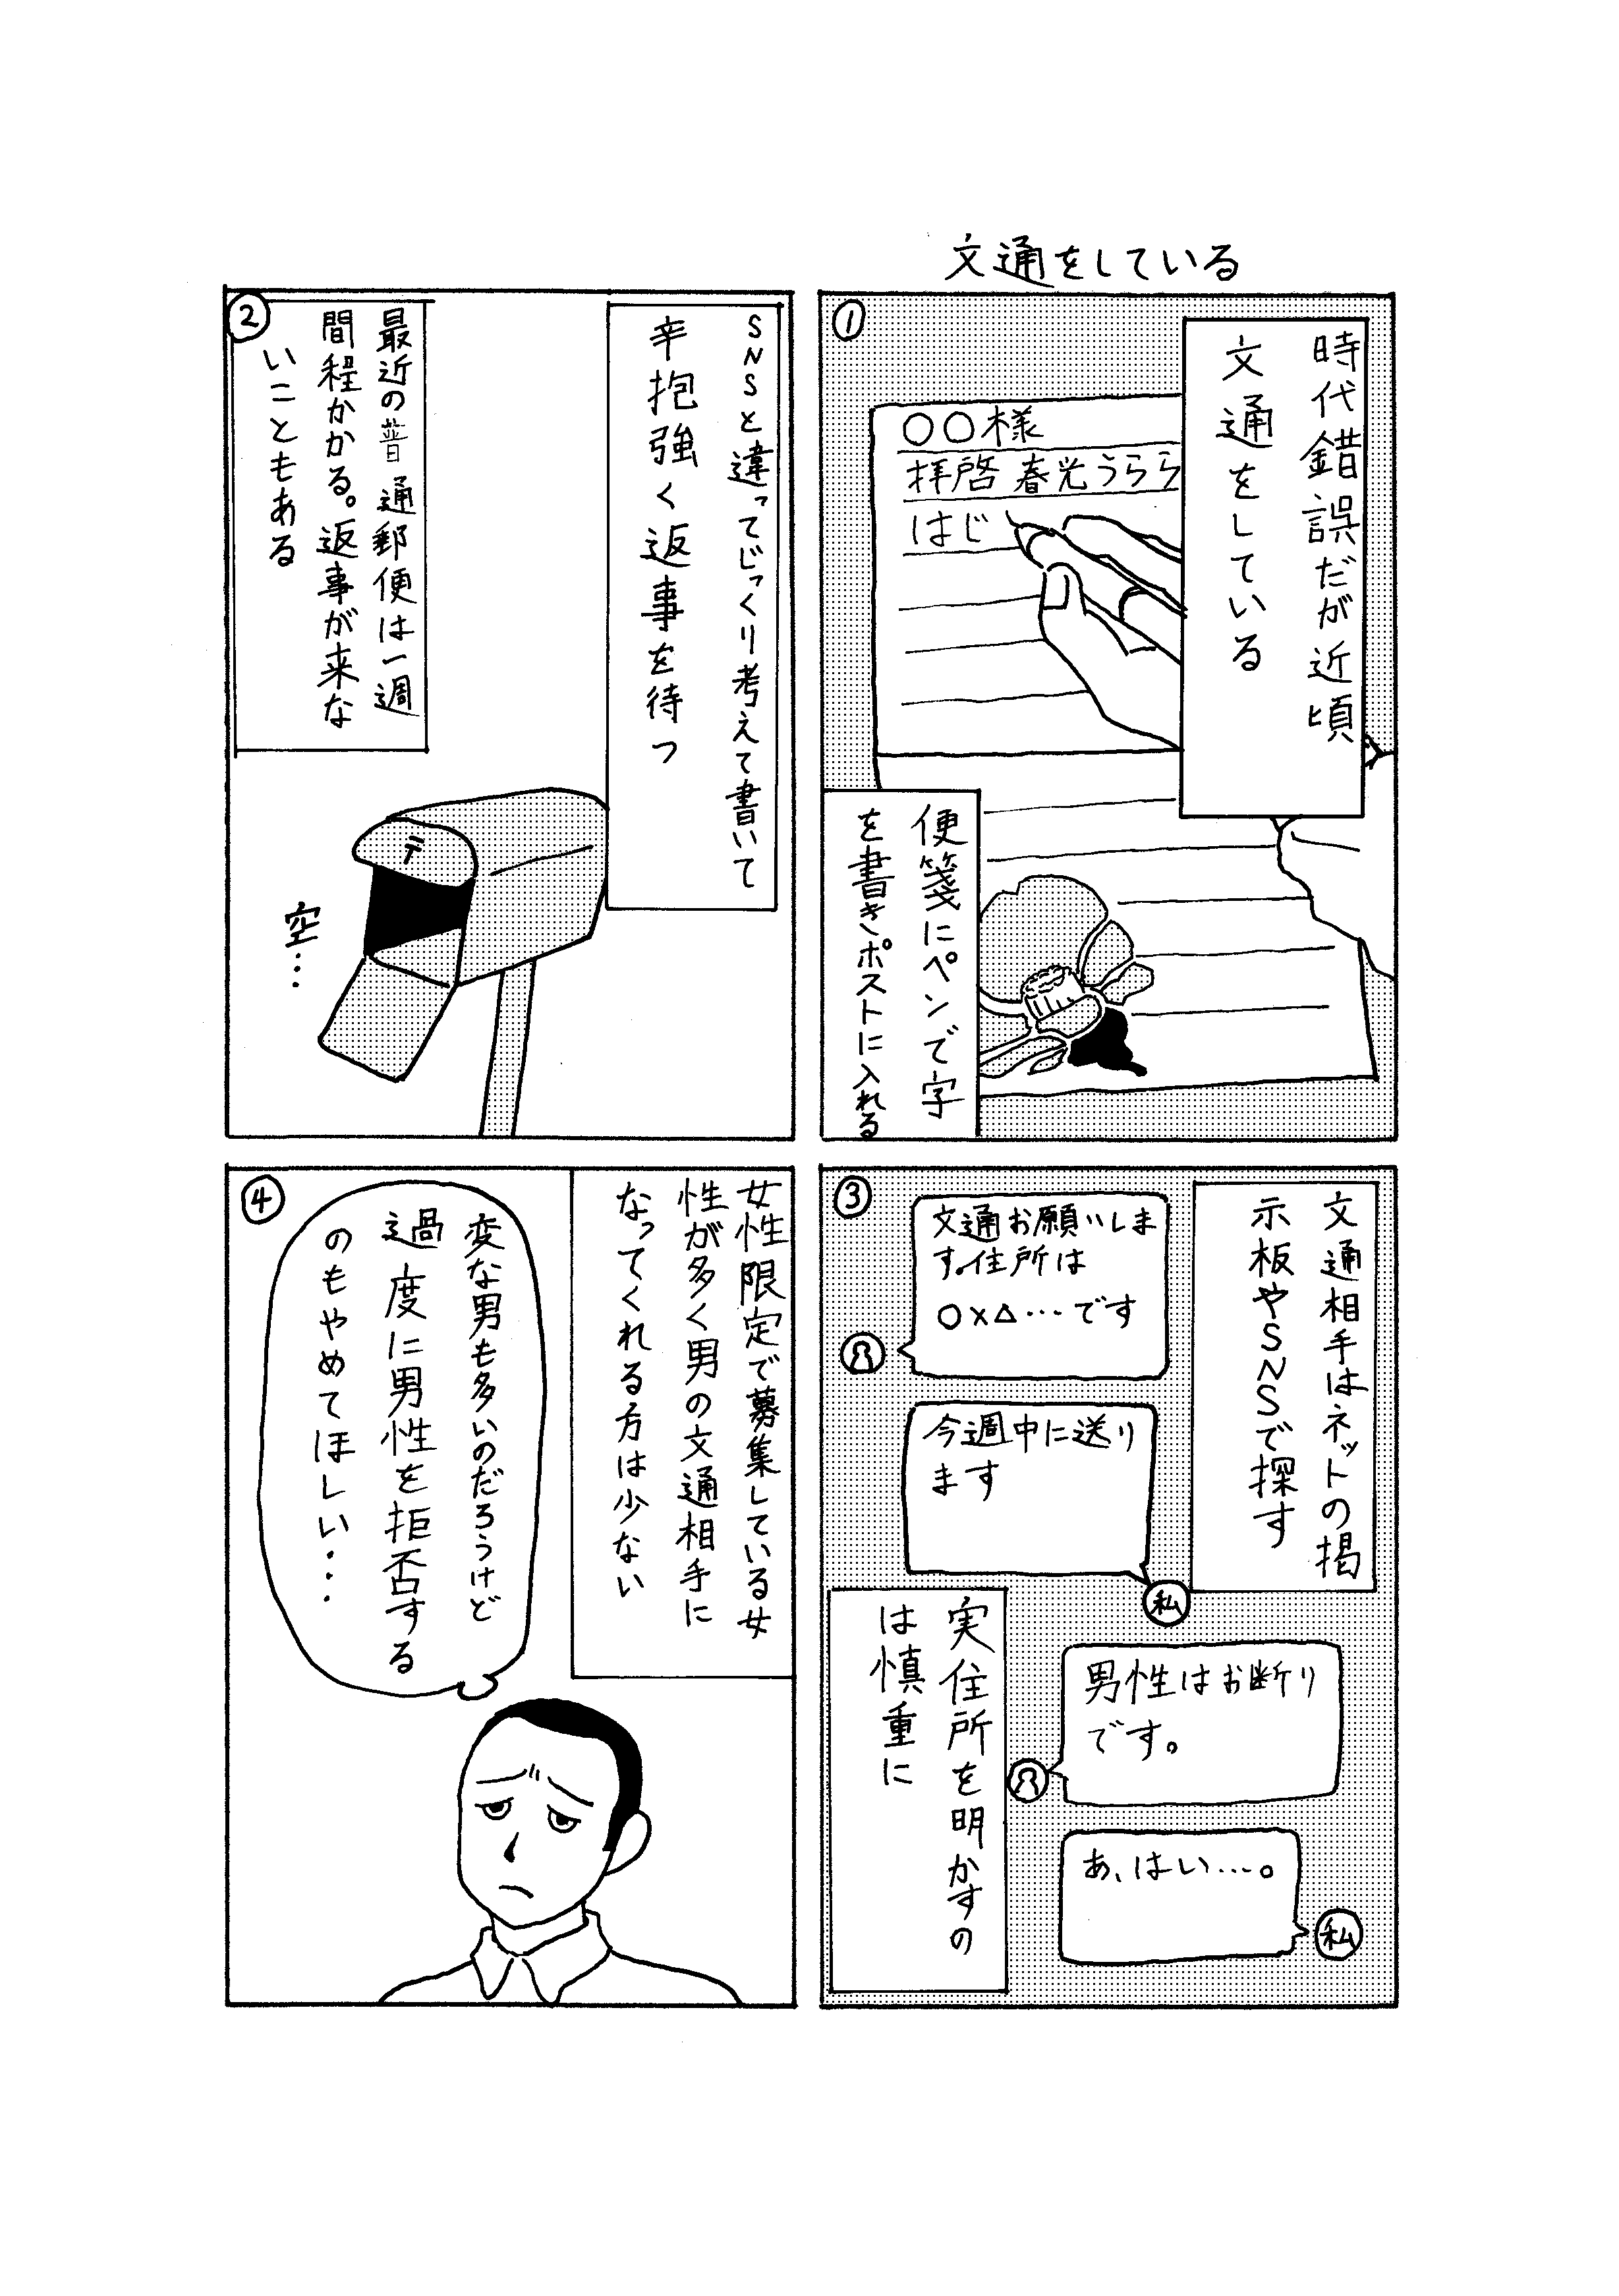 文通をしている
①
時代錯誤だが近頃
文通をしている
〇〇様
拝啓 春光うらら
はじ
便箋にペンで字
を書きポストに入れる
②
SNSと違ってじっくり考えて書いて
辛抱強く返事を待つ
最近の普通郵便は一週
間程かかる。返事が来な
いこともある
〒
空…
③
文通相手はネットの掲
示板やSNSで探す
文通お願いしま
す。住所は
〇×△…です
今週中に送り
ます
私
実住所を明かすの
は慎重に
男性はお断り
です。
あ、はい…。
私
④
女性限定で募集している女
性が多く男の文通相手に
なってくれる方は少ない
変な男も多いのだろうけど
過度に男性を拒否する
のもやめてほしい…